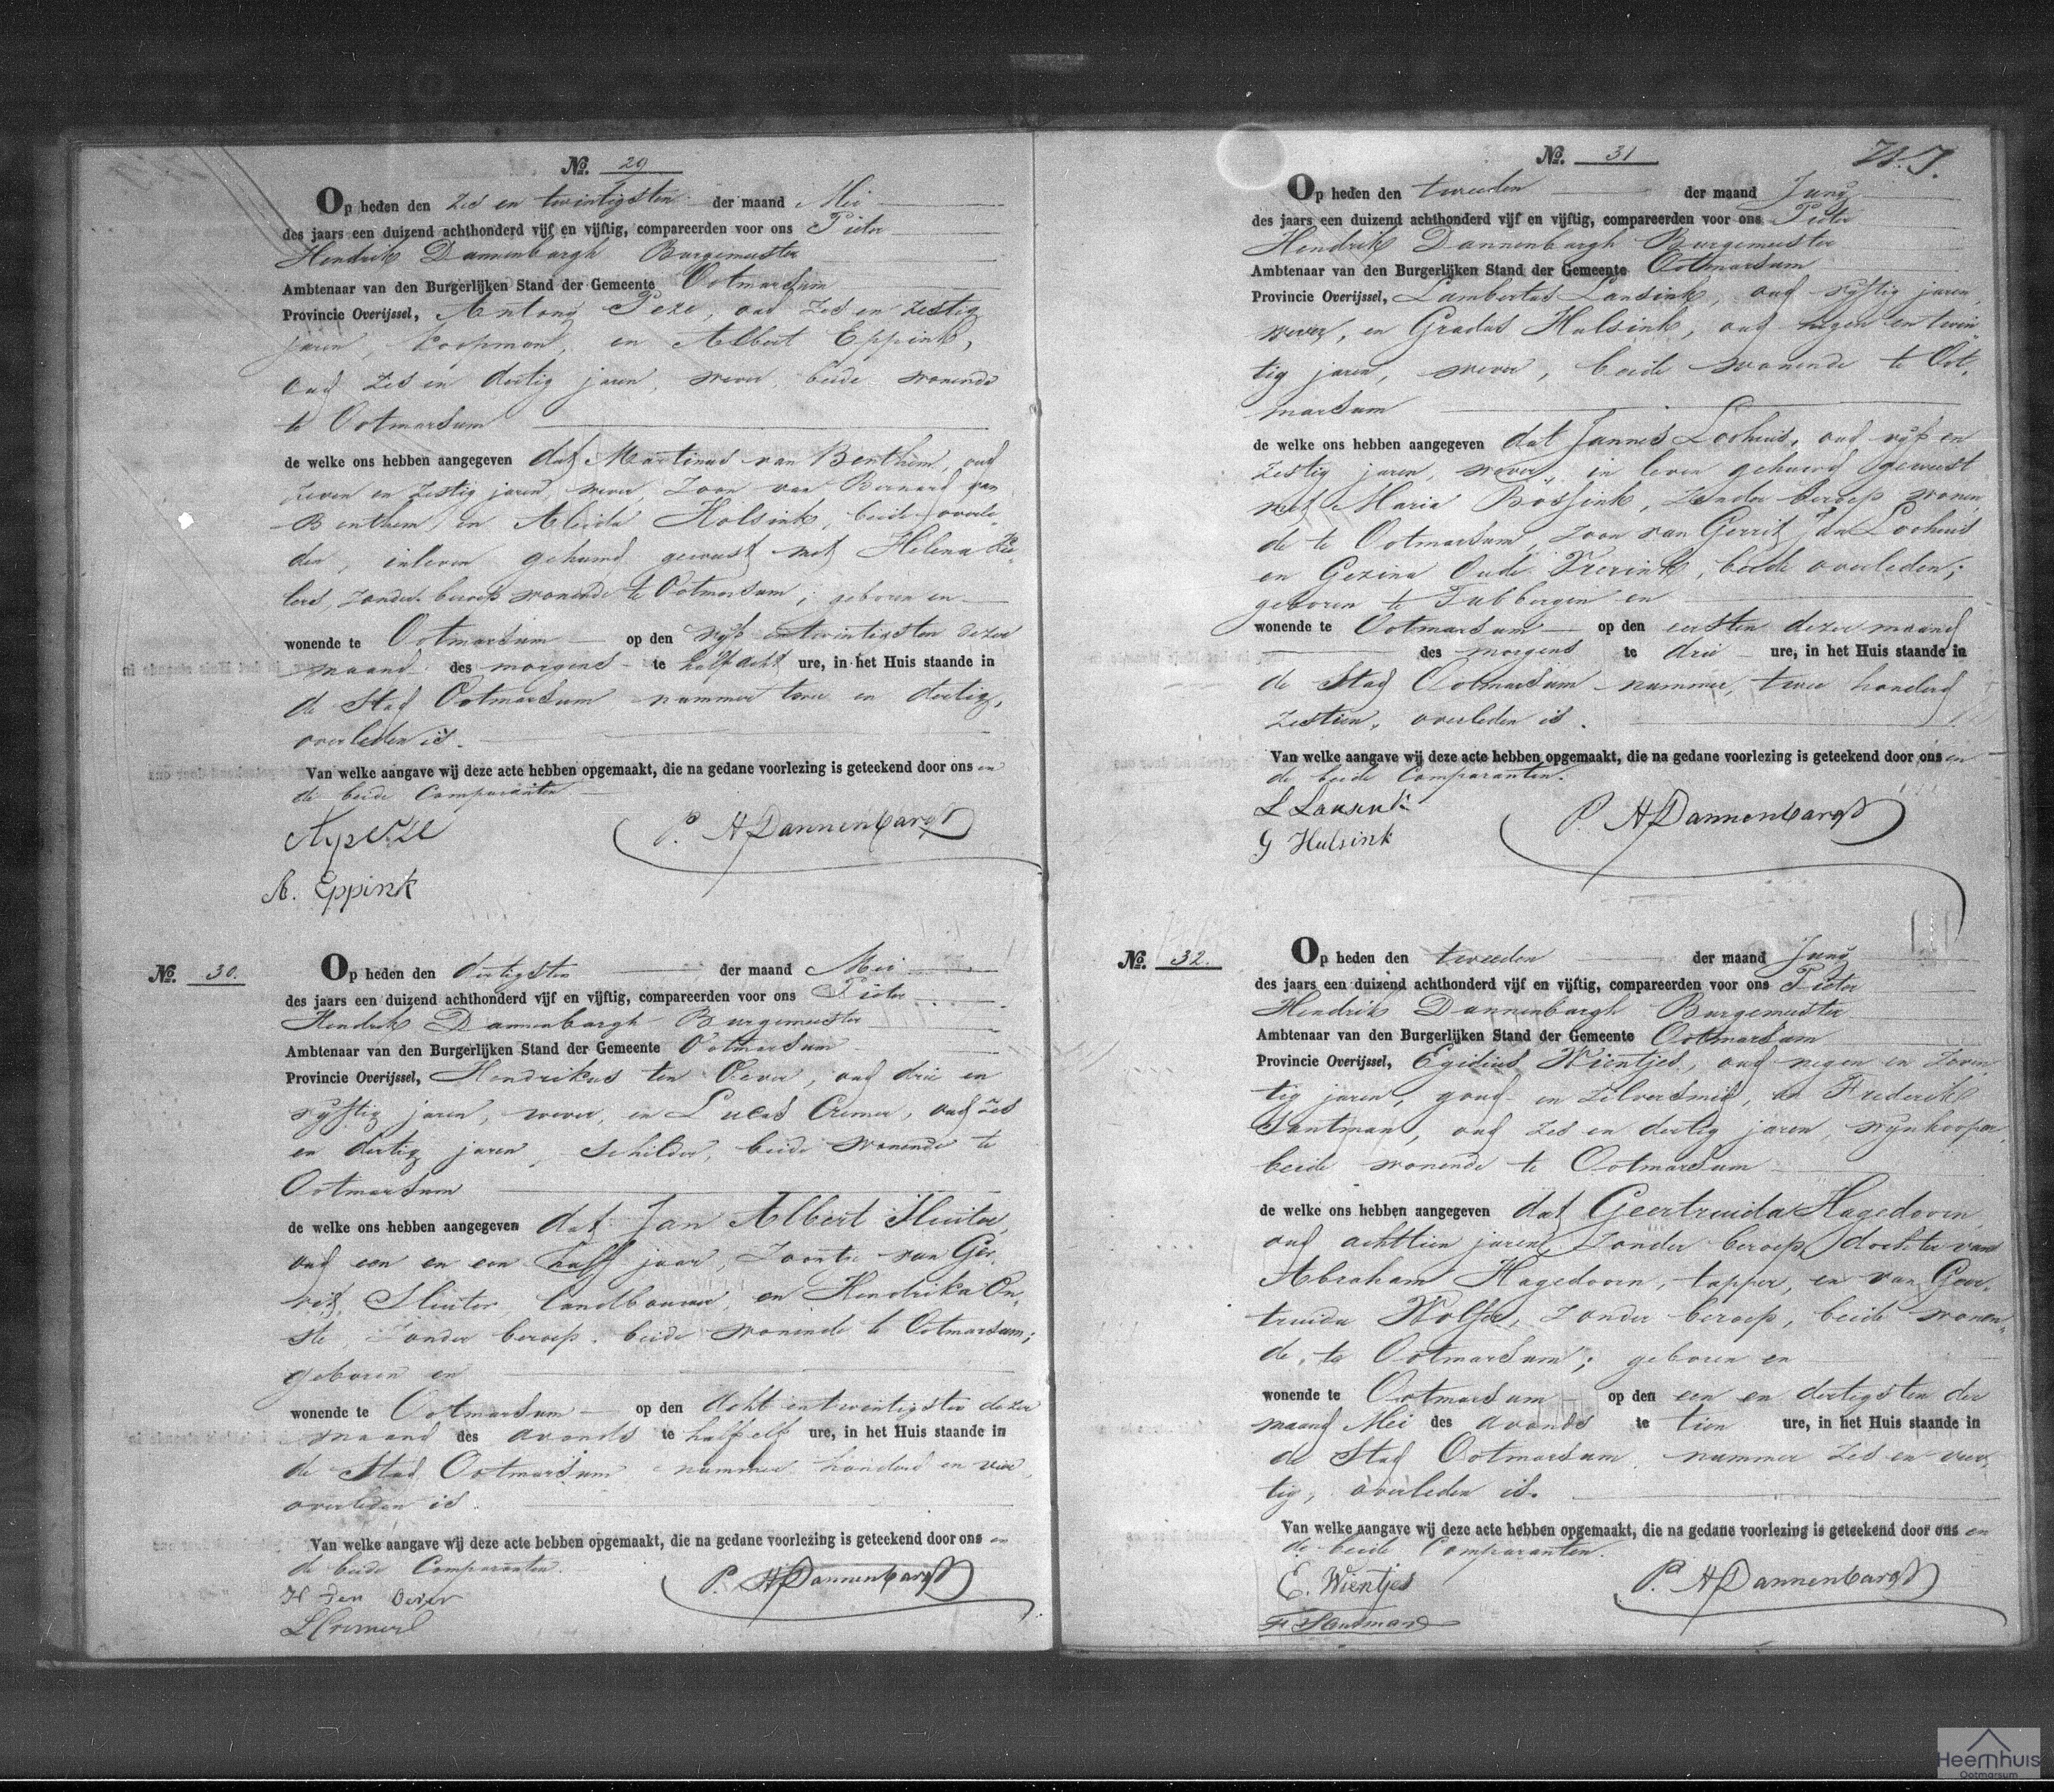 No. 29
Op heden den zes en twintigsten der maand Mei
des jaars een duizend achthonderd vijf en vijftig, compareerden voor ons Pieter
Hendrik Dannenbargh Burgemeester
Ambtenaar van den Burgerlijken Stand der Gemeente Ootmarsum
Provincie Overijssel, Antony Peze, oud zes en zestig
jaren, koopman, en Albert Eppink,
oud zes en dertig jaren, wever, beide wonende
te Ootmarsum
de welke ons hebben aangegeven dat Martinus van Benthem, oud
zeven en zestig jaren, wever, zoon van Bernard van
Benthem en Aleida Holsink, beide overle-
den, inleven gehuwd geweest met Helena
lers, zonder beroep wonende te Ootmarsum; geboren en
wonende te Ootmarsum op den vijf entwintigsten dezer
maand des morgens te half acht ure, in het Huis staande in
de Stad Ootmarsum nummer twee en dertig,
overleden is.
Van welke aangave wij deze acte hebben opgemaakt, die na gedane voorlezing is geteekend door ons en
de beide Comparanten.
P. H Dannenbargh
A. Eppink
No. 30.
Op heden den dertigsten der maand Mei
des jaars een duizend achthonderd vijf en vijftig, compareerden voor ons Pieter
Hendrik Dannenbargh Burgemeester
Ambtenaar van den Burgerlijken Stand der Gemeente Ootmarsum
Provincie Overijssel, Hendrikus ten Oever, oud drie en
vijftig jaren, wever, en Lucas Cremer, oud zes
en dertig jaren, schilder, beide wonende te
Ootmarsum
de welke ons hebben aangegeven dat Jan Albert Sluiter,
oud een en een half jaar, zoontje van Ger-
rit Sluiter landbouwer, en Hendrika On-
ste, zonder beroep, beide wonende te Ootmarsum;
geboren en
wonende te Ootmarsum op den acht entwintigsten dezer
maand des avonds te half elf ure, in het Huis staande in
de Stad Ootmarsum nummer honderd en vier,
overleden is.
Van welke aangave wij deze acte hebben opgemaakt, die na gedane voorlezing is geteekend door ons en
de beide Comparanten.
P. H Dannenbargh
H ten Oever
L Cremer
No. 31
Op heden den tweeden der maand Juny
des jaars een duizend achthonderd vijf en vijftig, compareerden voor ons Pieter
Hendrik Dannenbargh Burgemeester
Ambtenaar van den Burgerlijken Stand der Gemeente Ootmarsum
Provincie Overijssel, Lambertus Lansink, oud vijftig jaren,
wever, en Gradus Hulsink, oud negen en twin-
tig jaren, wever, beide wonende te Oot-
marsum
de welke ons hebben aangegeven dat Jannes Loohuis, oud vijf en
zestig jaren, wever, in leven gehuwd geweest
met Maria Bössink, zonder beroep wonen-
de te Ootmarsum, zoon van Gerrit Jan Loohuis
en Gezina Oude Vrerink, beide overleden;
geboren te Tubbergen en
wonende te Ootmarsum op den eersten dezer maand
des morgens te drie ure, in het Huis staande in
de Stad Ootmarsum nummer, twee honderd
zestien, overleden is.
Van welke aangave wij deze acte hebben opgemaakt, die na gedane voorlezing is geteekend door ons en
de beide Comparanten.
L Lansink
P. H Dannenbargh
G Hulsink
No. 32.
Op heden den tweeden der maand Juny
des jaars een duizend achthonderd vijf en vijftig, compareerden voor ons Pieter
Hendrik Dannenbargh Burgemeester
Ambtenaar van den Burgerlijken Stand der Gemeente Ootmarsum
Provincie Overijssel, Egidius Wientjes, oud negen en zeven-
tig jaren, goud- en zilversmid, en Frederik
Santman, oud zes en dertig jaren, wijnkooper,
beide wonende te Ootmarsum
de welke ons hebben aangegeven dat Geertruida Hagedoorn
oud achttien jaren, zonder beroep, dochter van
Abraham Hagedoorn, tapper, en van Geer-
truida Wolfer, zonder beroep, beide wonen-
de, te Ootmarsum; geboren en
wonende te Ootmarsum op den een en dertigsten der
maand Mei des avonds te tien ure, in het Huis staande in
de Stad Ootmarsum nummer zes en veer-
tig, overleden is.
Van welke aangave wij deze acte hebben opgemaakt, die na gedane voorlezing is geteekend door ons en
de beide Comparanten.
E. Wientjes
P. H Dannenbargh
F Santman
Heemhuis
Ootmarsum